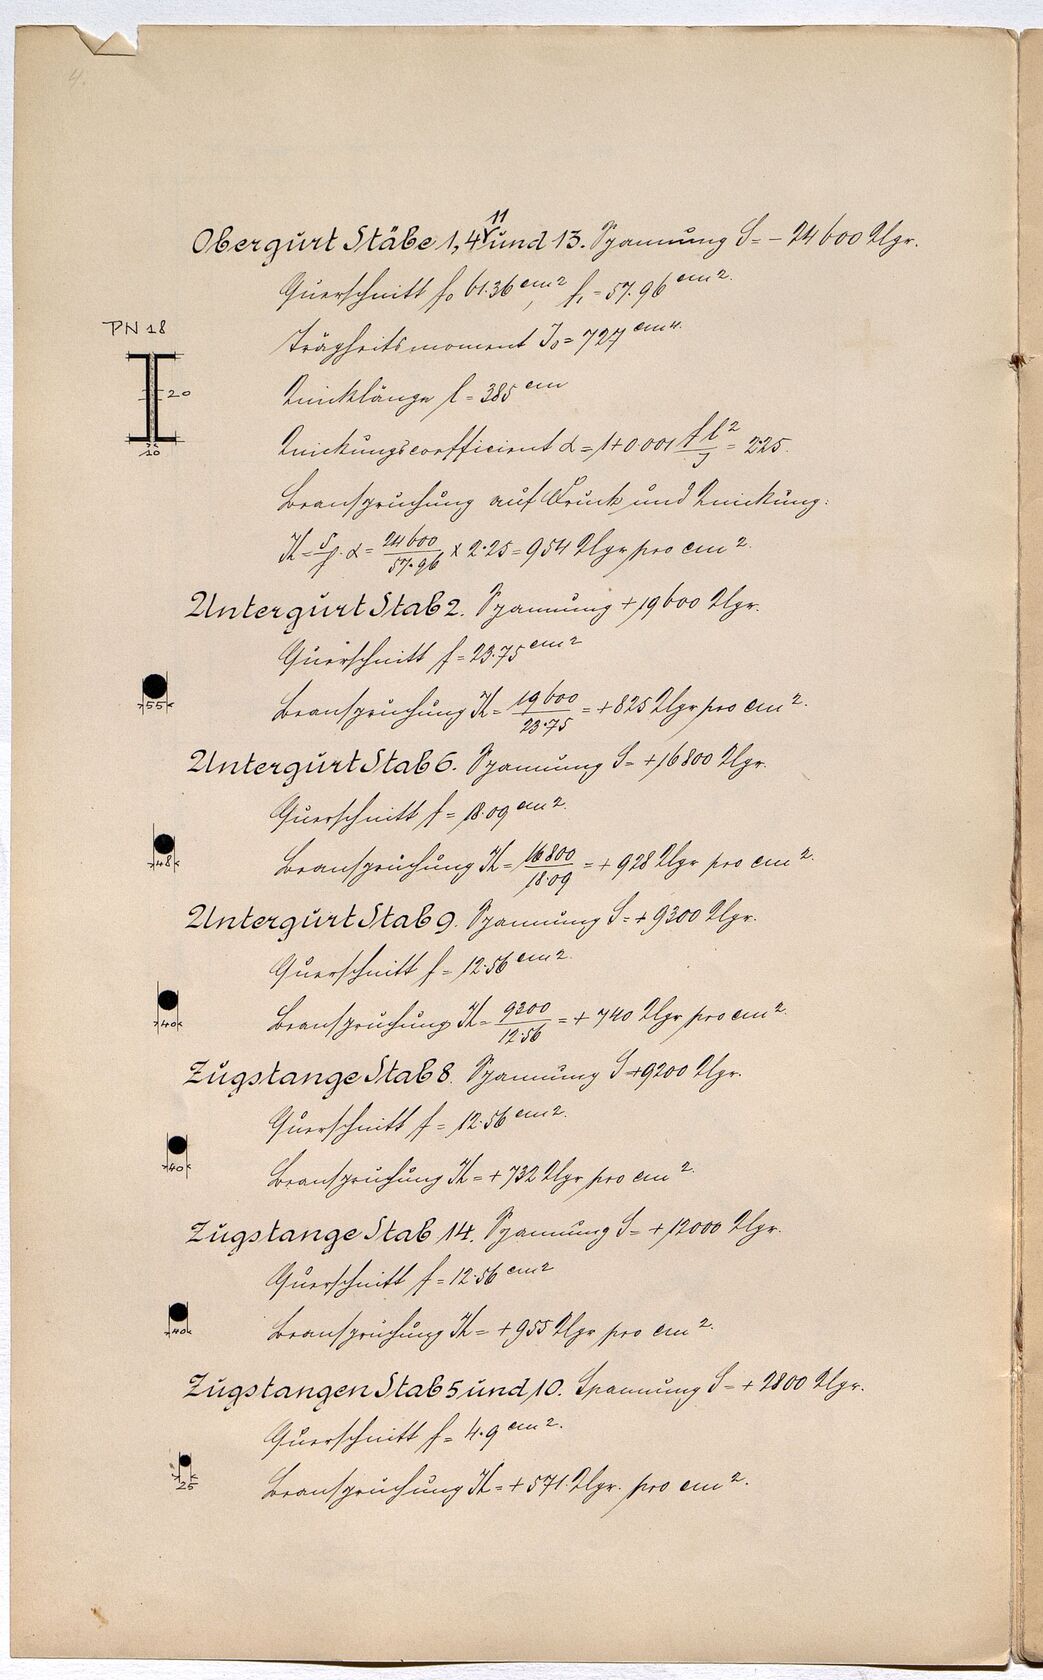 4.
Obergurt Stäbe 1, 4, 11 und 13. Spannung S = - 24600 Klgr.
Querschnitt f₀ 61.36 cm², f₁ = 57.96 cm².
PN 18
Trägheitsmoment J₀ = 727 cm⁴.
20
Knicklänge l = 385 cm
Knickungscoefficient α = 1+0.001 f l²/J = 2.25.
10
Beanspruchung auf Druck und Knickung:
K = S/f · α = 24600/57.96 x 2.25 = 954 Klgr pro cm².
Untergurt Stab 2. Spannung + 19600 Klgr.
Querschnitt f = 23.75 cm²
55
Beanspruchung K = 19600/23.75 = + 825 Klgr pro cm².
Untergurt Stab 6. Spannung S = + 16800 Klgr.
Querschnitt f = 18.09 cm².
48
Beanspruchung K = 16800/18.09 = + 928 Klgr pro cm².
Untergurt Stab 9. Spannung S = + 9300 Klgr.
Querschnitt f = 12.56 cm².
40
Beanspruchung K = 9300/12.56 = + 740 Klgr pro cm².
Zugstange Stab 8. Spannung S +9200 Klgr.
Querschnitt f = 12.56 cm².
40
Beanspruchung K = + 732 Klgr pro cm².
Zugstange Stab 14. Spannung S = + 12000 Klgr.
Querschnitt f = 12.56 cm²
40
Beanspruchung K = + 955 Klgr pro cm².
Zugstangen Stab 5 und 10. Spannung S = + 2800 Klgr.
Querschnitt f = 4.9 cm².
25
Beanspruchung K = + 571 Klgr. pro cm².